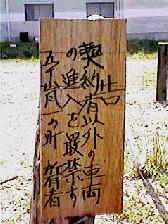 告
契約者以外の車両
の進入を厳禁す
五十嵐町 所有者